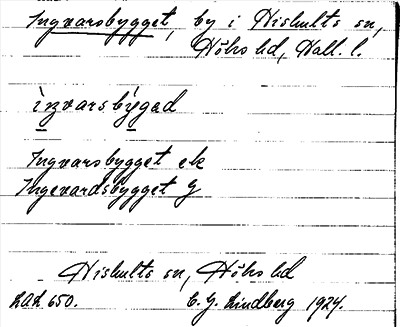 Ingvarsbygget, by i Hishults sn,
Höks hd, Hall. l.
ìŋvarsbýgəd
Ingvarsbygget ek
Ingevardsbygget g
Hishults sn, Höks hd
LAL 650. C. G. Lindberg 1924.